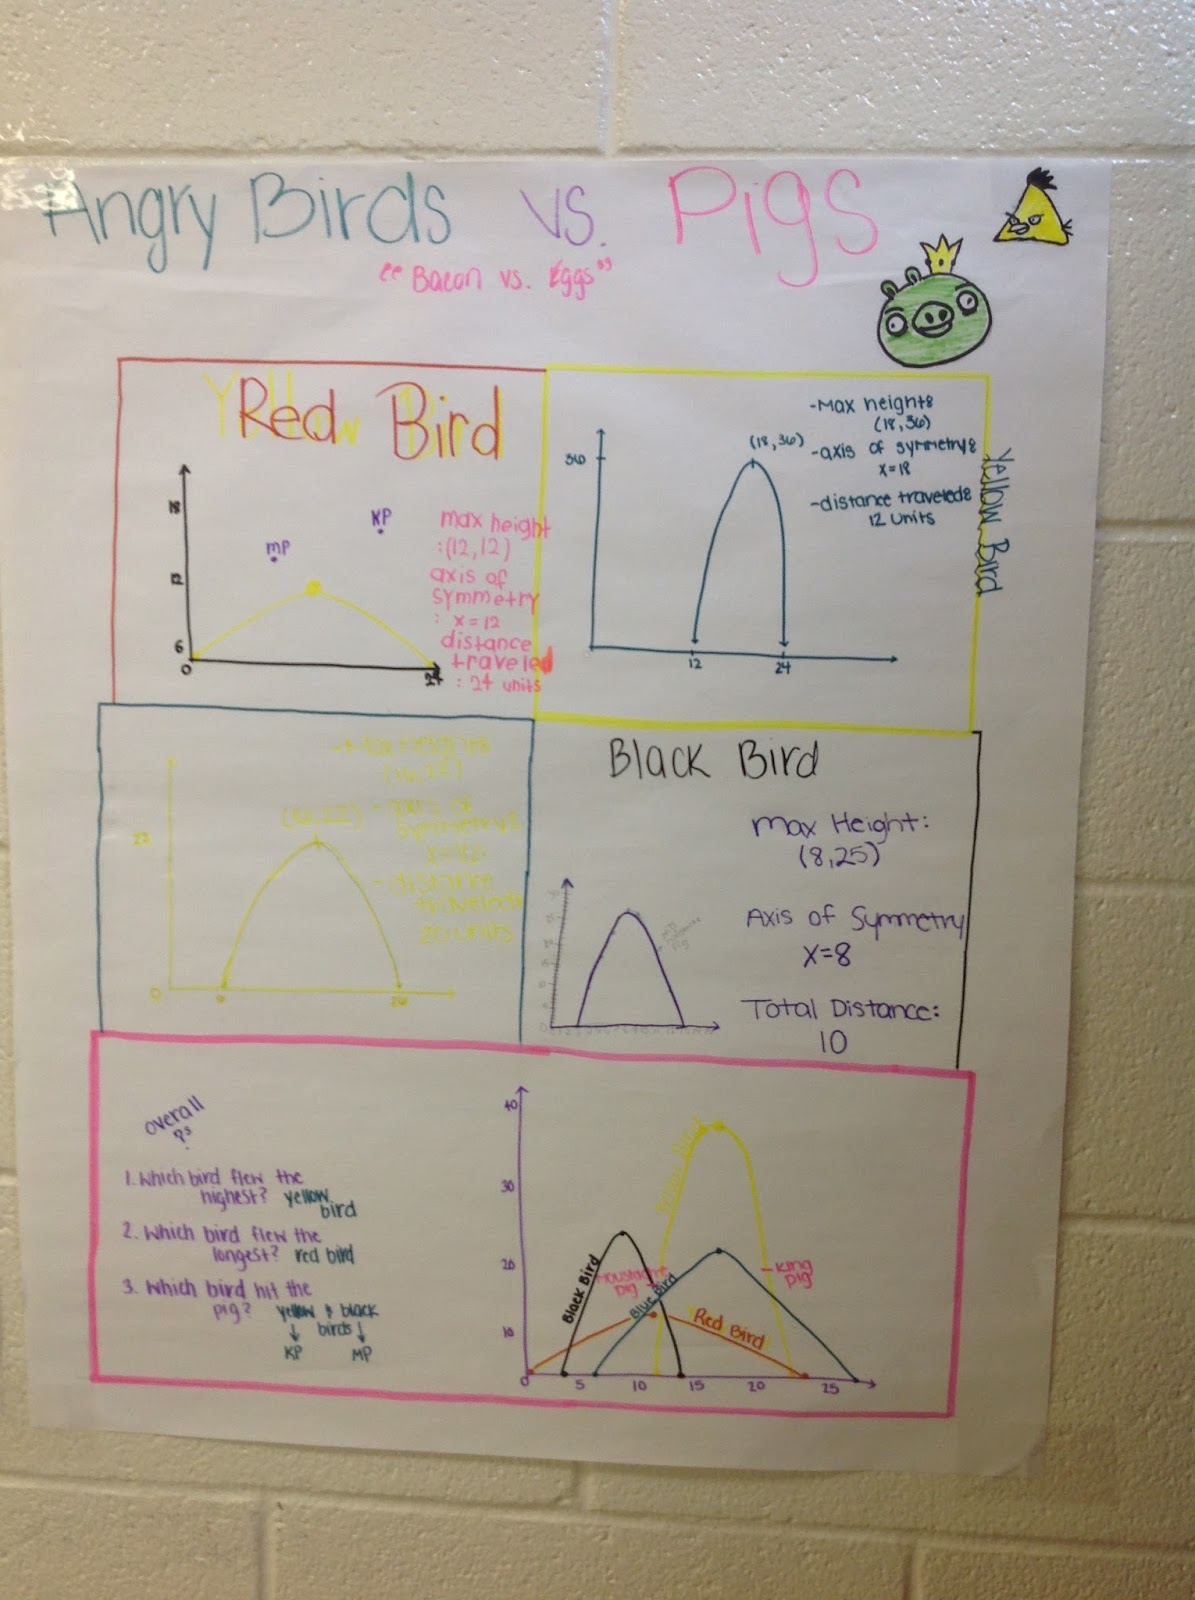 Angry Birds vs. Pigs
"Bacon vs. Eggs"
Red Bird
18
12
6
0
24
MP
KP
max height
:(12,12)
axis of
symmetry
: x=12
distance
traveled
: 24 units
36
(18,36)
12
24
-Max height:
(18,36)
-axis of symmetry:
x=18
-distance traveled:
12 units
Yellow Bird
22
0
6
26
(16,22)
-Max height:
(16,22)
-axis of
symmetry:
x=16
-distance
traveled:
20 units
Black Bird
Max Height:
(8,25)
Axis of Symmetry
x=8
Total Distance:
10
overall
?s
1. Which bird flew the
highest? yellow
bird
2. Which bird flew the
longest? red bird
3. Which bird hit the
pig? yellow & black
birds
KP MP
40
30
20
10
0
5
10
15
20
25
Black Bird
Moustache
pig
Blue Bird
Yellow Bird
Red Bird
King
pig